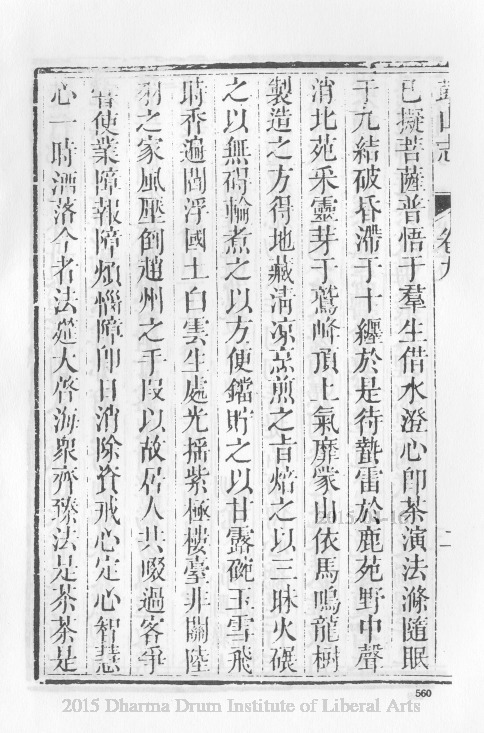 鼓山志
卷九
已擬菩薩普悟于羣生借水澄心即茶演法滌隨眠
于九結破昏滯于十纏於是待蟄雷於鹿苑野中聲
消北苑采靈芽于鷲峰頂上氣靡蒙山依馬鳴龍樹
製造之方得地藏清涼烹煎之旨焙之以三昧火碾
之以無碍輪煮之以方便鐺貯之以甘露碗玉雪飛
時香遍閻浮國土白雲生處光揺紫極樓臺非關陸
羽之家風壓倒趙州之手叚以故居人共啜過客爭
嘗使業障報障煩惱障即日消除資戒心定心智慧
心一時洒落今者法筵大啓海衆齊臻法是茶茶是
560
2015 Dharma Drum Institute of Liberal Arts